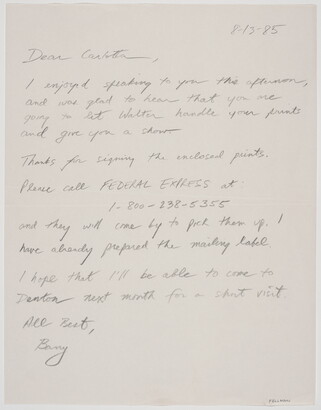 8-13-85
Dear Carlotta,
I enjoyed speaking to you this afternoon,
and was glad to hear that you are
going to let Walter handle your prints
and give you a show.
Thanks for signing the enclosed prints.
Please call FEDERAL EXPRESS at:
1-800-238-5355
and they will come by to pick them up. I
have already prepared the mailing label.
I hope that I'll be able to come to
Denton next month for a short visit.
All Best,
Barry